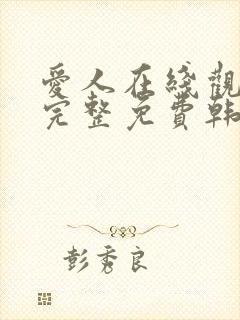 愛人在綫觀
完整免費韩
彭秀良